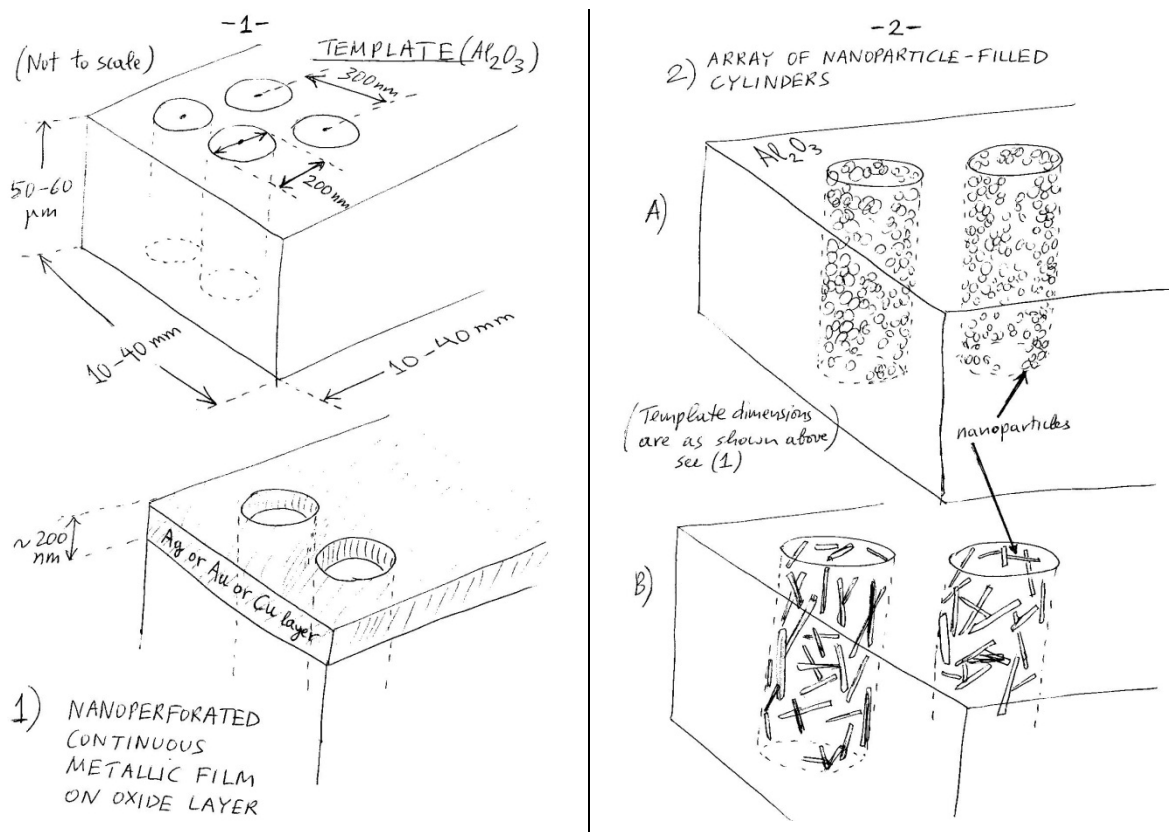 -1-
(Not to scale)
TEMPLATE (Al₂O₃)
300nm
200nm
50-60
μm
10-40 mm
10-40 mm
~200
nm
Ag or Au or Cu layer
1) NANOPERFORATED
CONTINUOUS
METALLIC FILM
ON OXIDE LAYER
-2-
2) ARRAY OF NANOPARTICLE-FILLED
CYLINDERS
Al₂O₃
A)
(Template dimensions
are as shown above)
see (1)
nanoparticles
B)